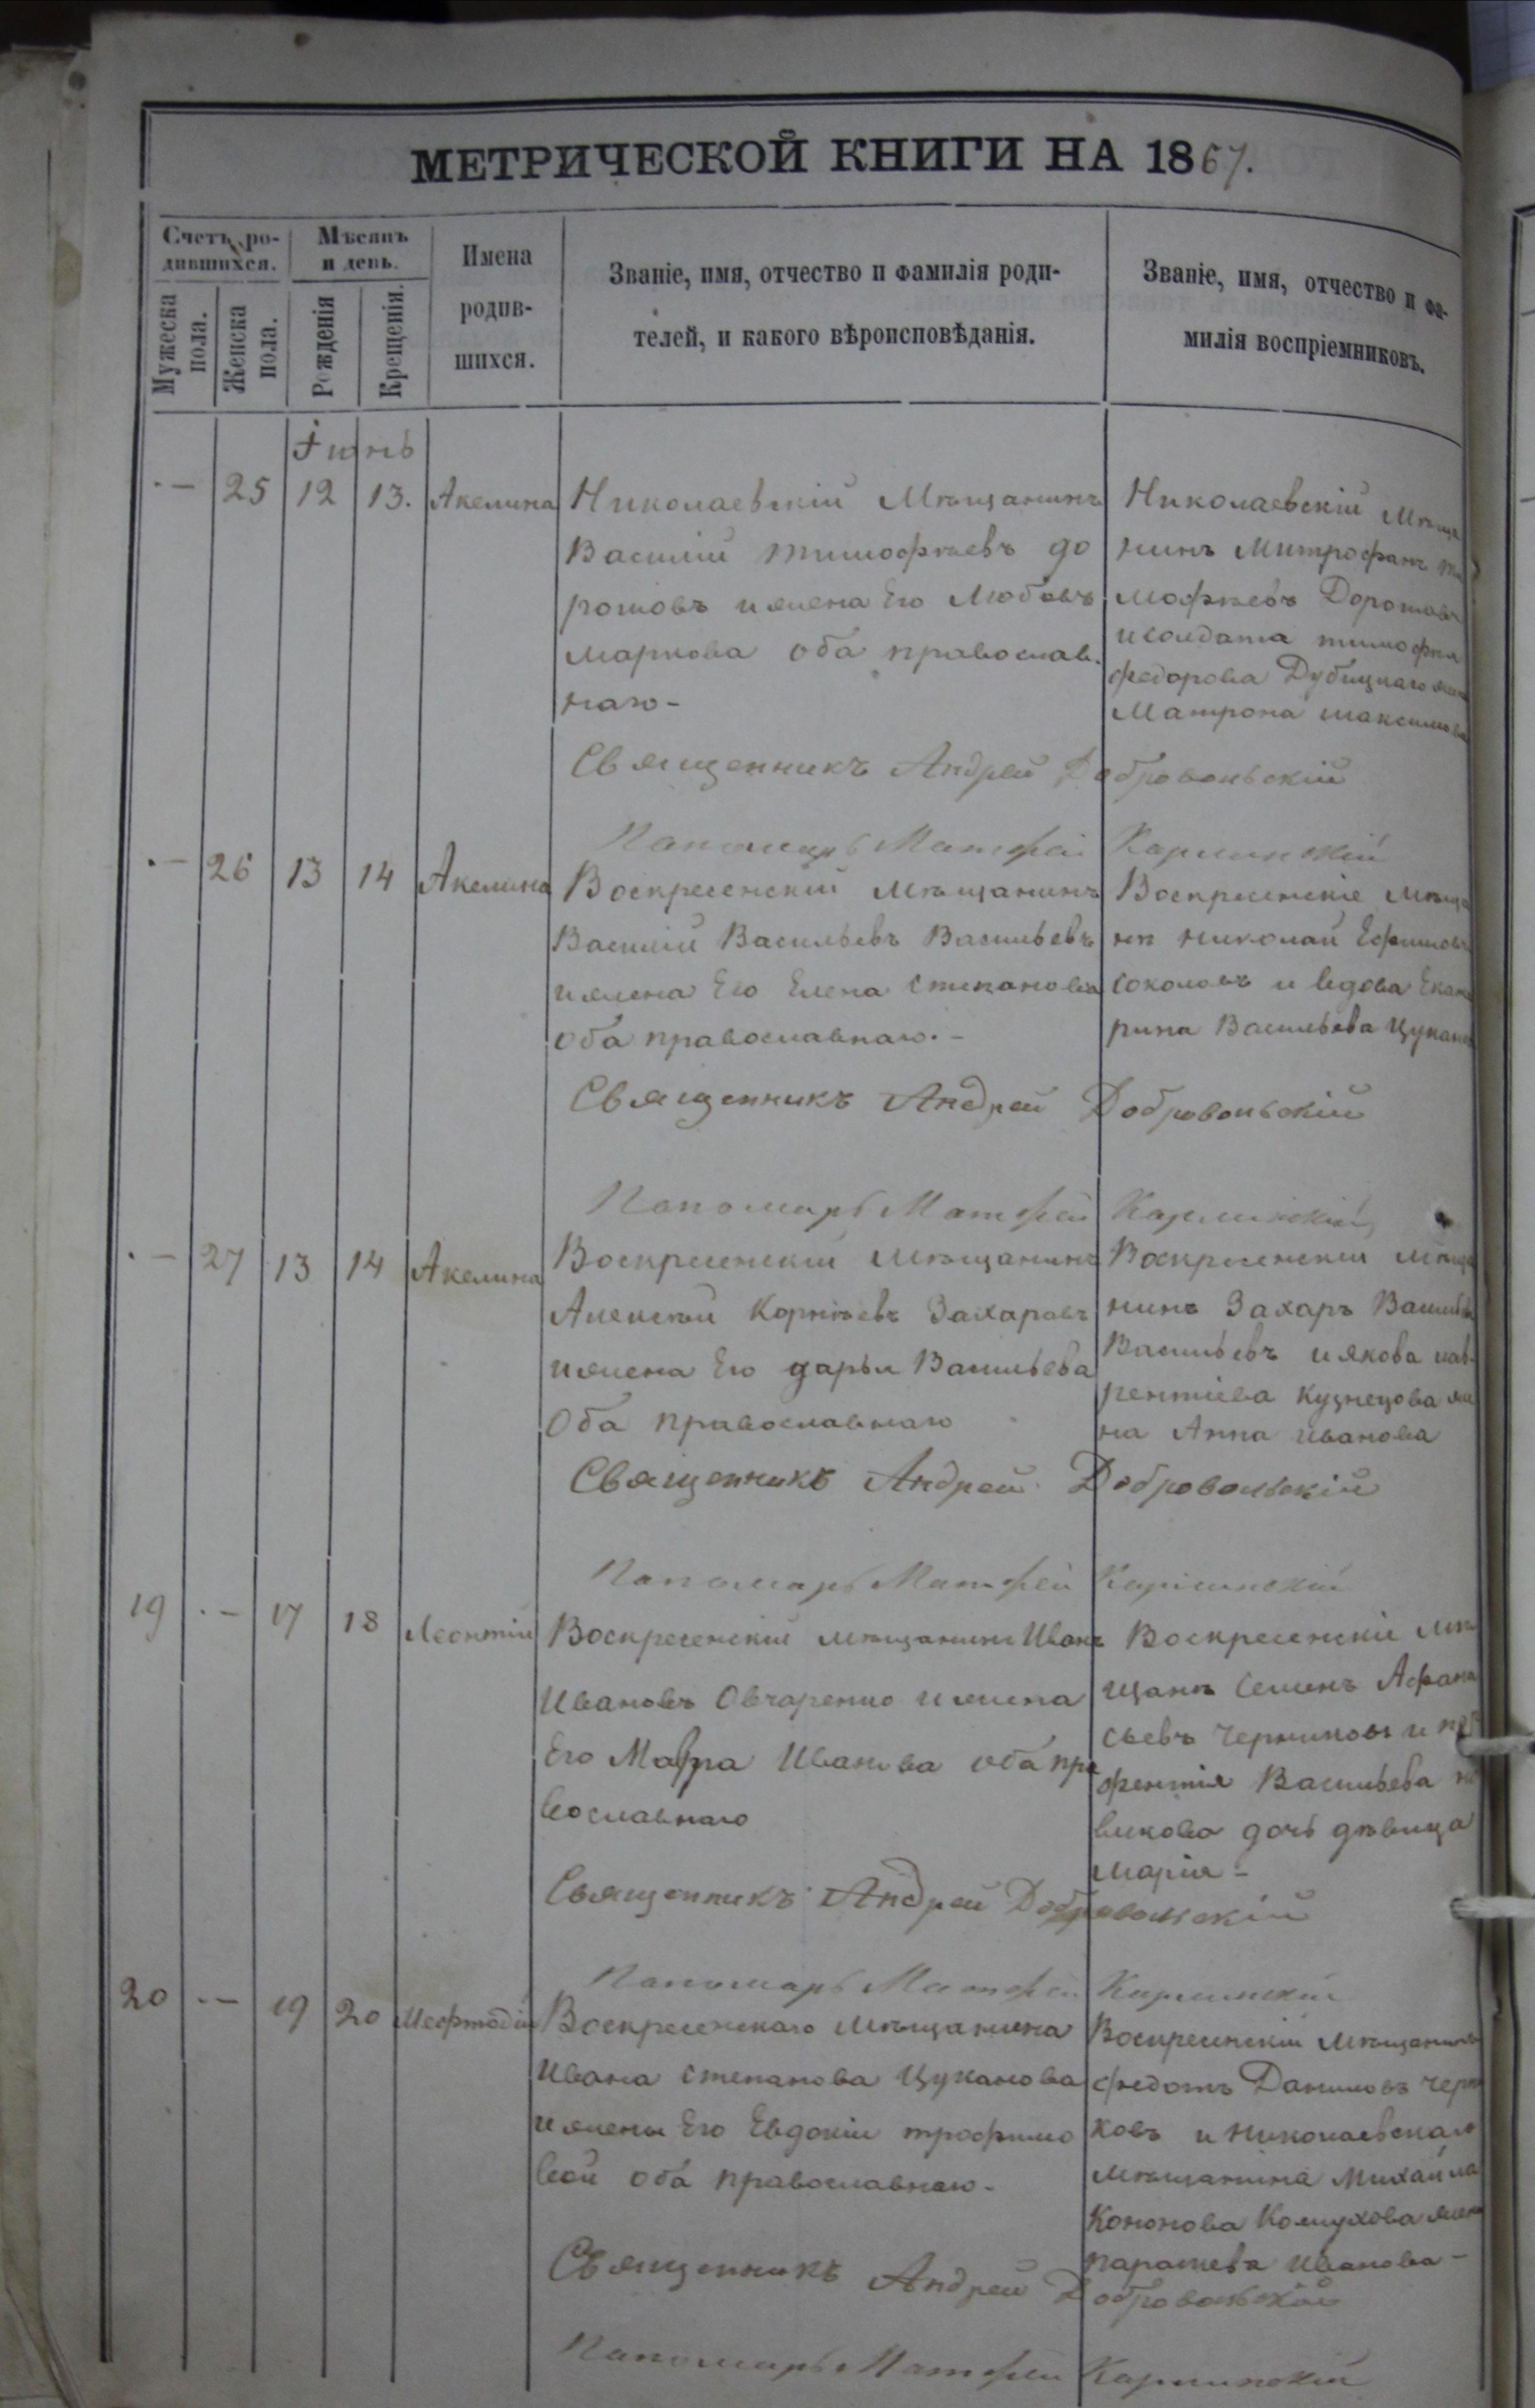 МЕТРИЧЕСКОЙ КНИГИ НА 1867.
Счетъ ро-
дившихся.
Мужеска
пола.
Женска
пола.
Мѣсяцъ
и день.
Рожденія
Крещенія.
Имена
родив-
шихся.
Званіе, имя, отчество и фамилія роди-
телей, и какого вѣроисповѣданія.
Званіе, имя, отчество и фа-
милія воспріемниковъ.
Іюнь
·— 25 12 13. Акелина
Николаевскій Мѣщанинъ
Василій тимофѣевъ до
рошовъ и жена Его Любовь
маркова оба православ.
наго-
Николаевскій Мѣща
нинъ Митрофанъ ти
мофѣевъ Дорошовъ
и солдата тимофѣя
федорова Дубицкаго жена
Матрона максимова
Священникъ Андрей Добровольскій
Пономарь Матфей
·— 26 13 14 Акелина
Воскресенскій мѣщанинъ
Василій Васильевъ Васильевъ
и жена Его Елена степанова
оба православнаго.-
Воскресенскіе мѣща
не николай Ефимовъ
соколовъ и вдова Екате
рина Васильева Цукано
Священникъ Андрей Добровольскій
Пономарь Матфей
·— 27 13 14 Акелина
Воскресенскій мѣщанинъ
Алексѣй Корнѣевъ Захаровъ
и жена Его дарья Васильева
Оба православнаго
Воскресенскій мѣща
нинъ Захаръ Василье
Васильевъ и якова лав-
рентіева кузнецова же
на Анна иванова
Священникъ Андрей Добровольскій
Пономарь Матфей
19 ·— 17 18 Леонтій
Воскресенскій мѣщанинъ Иванъ
Ивановъ Овчаренко и жена
Его Мавра Иванова оба пра
вославнаго
Воскресенскіе мѣ
щане Семенъ Афана
сьевъ черниковъ и
Васильева но
викова дочь дѣвица
марія-
Священникъ Андрей Добровольскій
Пономарь Матфей
20 ·— 19 20 Мефтодій
Воскресенскаго мѣщанина
Ивана степанова Цуканова
и жены Его Евдокіи трофимо
вой оба православнаго-
Воскресенскій мѣщанинъ
федотъ Даниловъ черн
ковъ и николаевскаго
мѣщанина михаила
Кононова жена
парасчева Иванова-
Священникъ Андрей Добровольскій
Пономарь Матфей